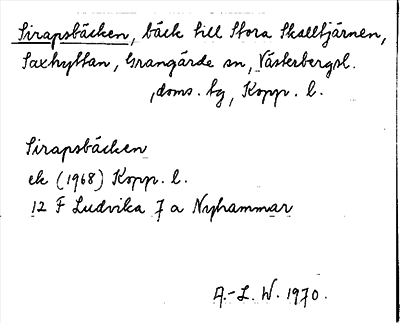 Sirapsbäcken, bäck till Stora Skalltjärnen,
Saxhyttan, Grangärde sn, Västerbergsl.
doms. tg, Kopp. l.
Sirapsbäcken
ek (1968) Kopp. l.
12 F Ludvika 7 a Nyhammar
A.-L. W. 1970.